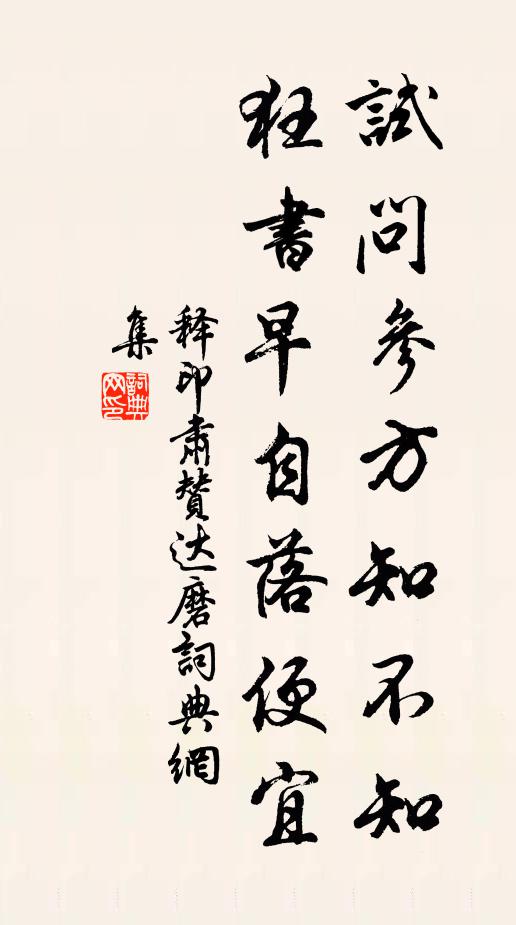 試問參方知不知
狂書早自落便宜
释印肅贊达磨詞典網
集
詞典
网印